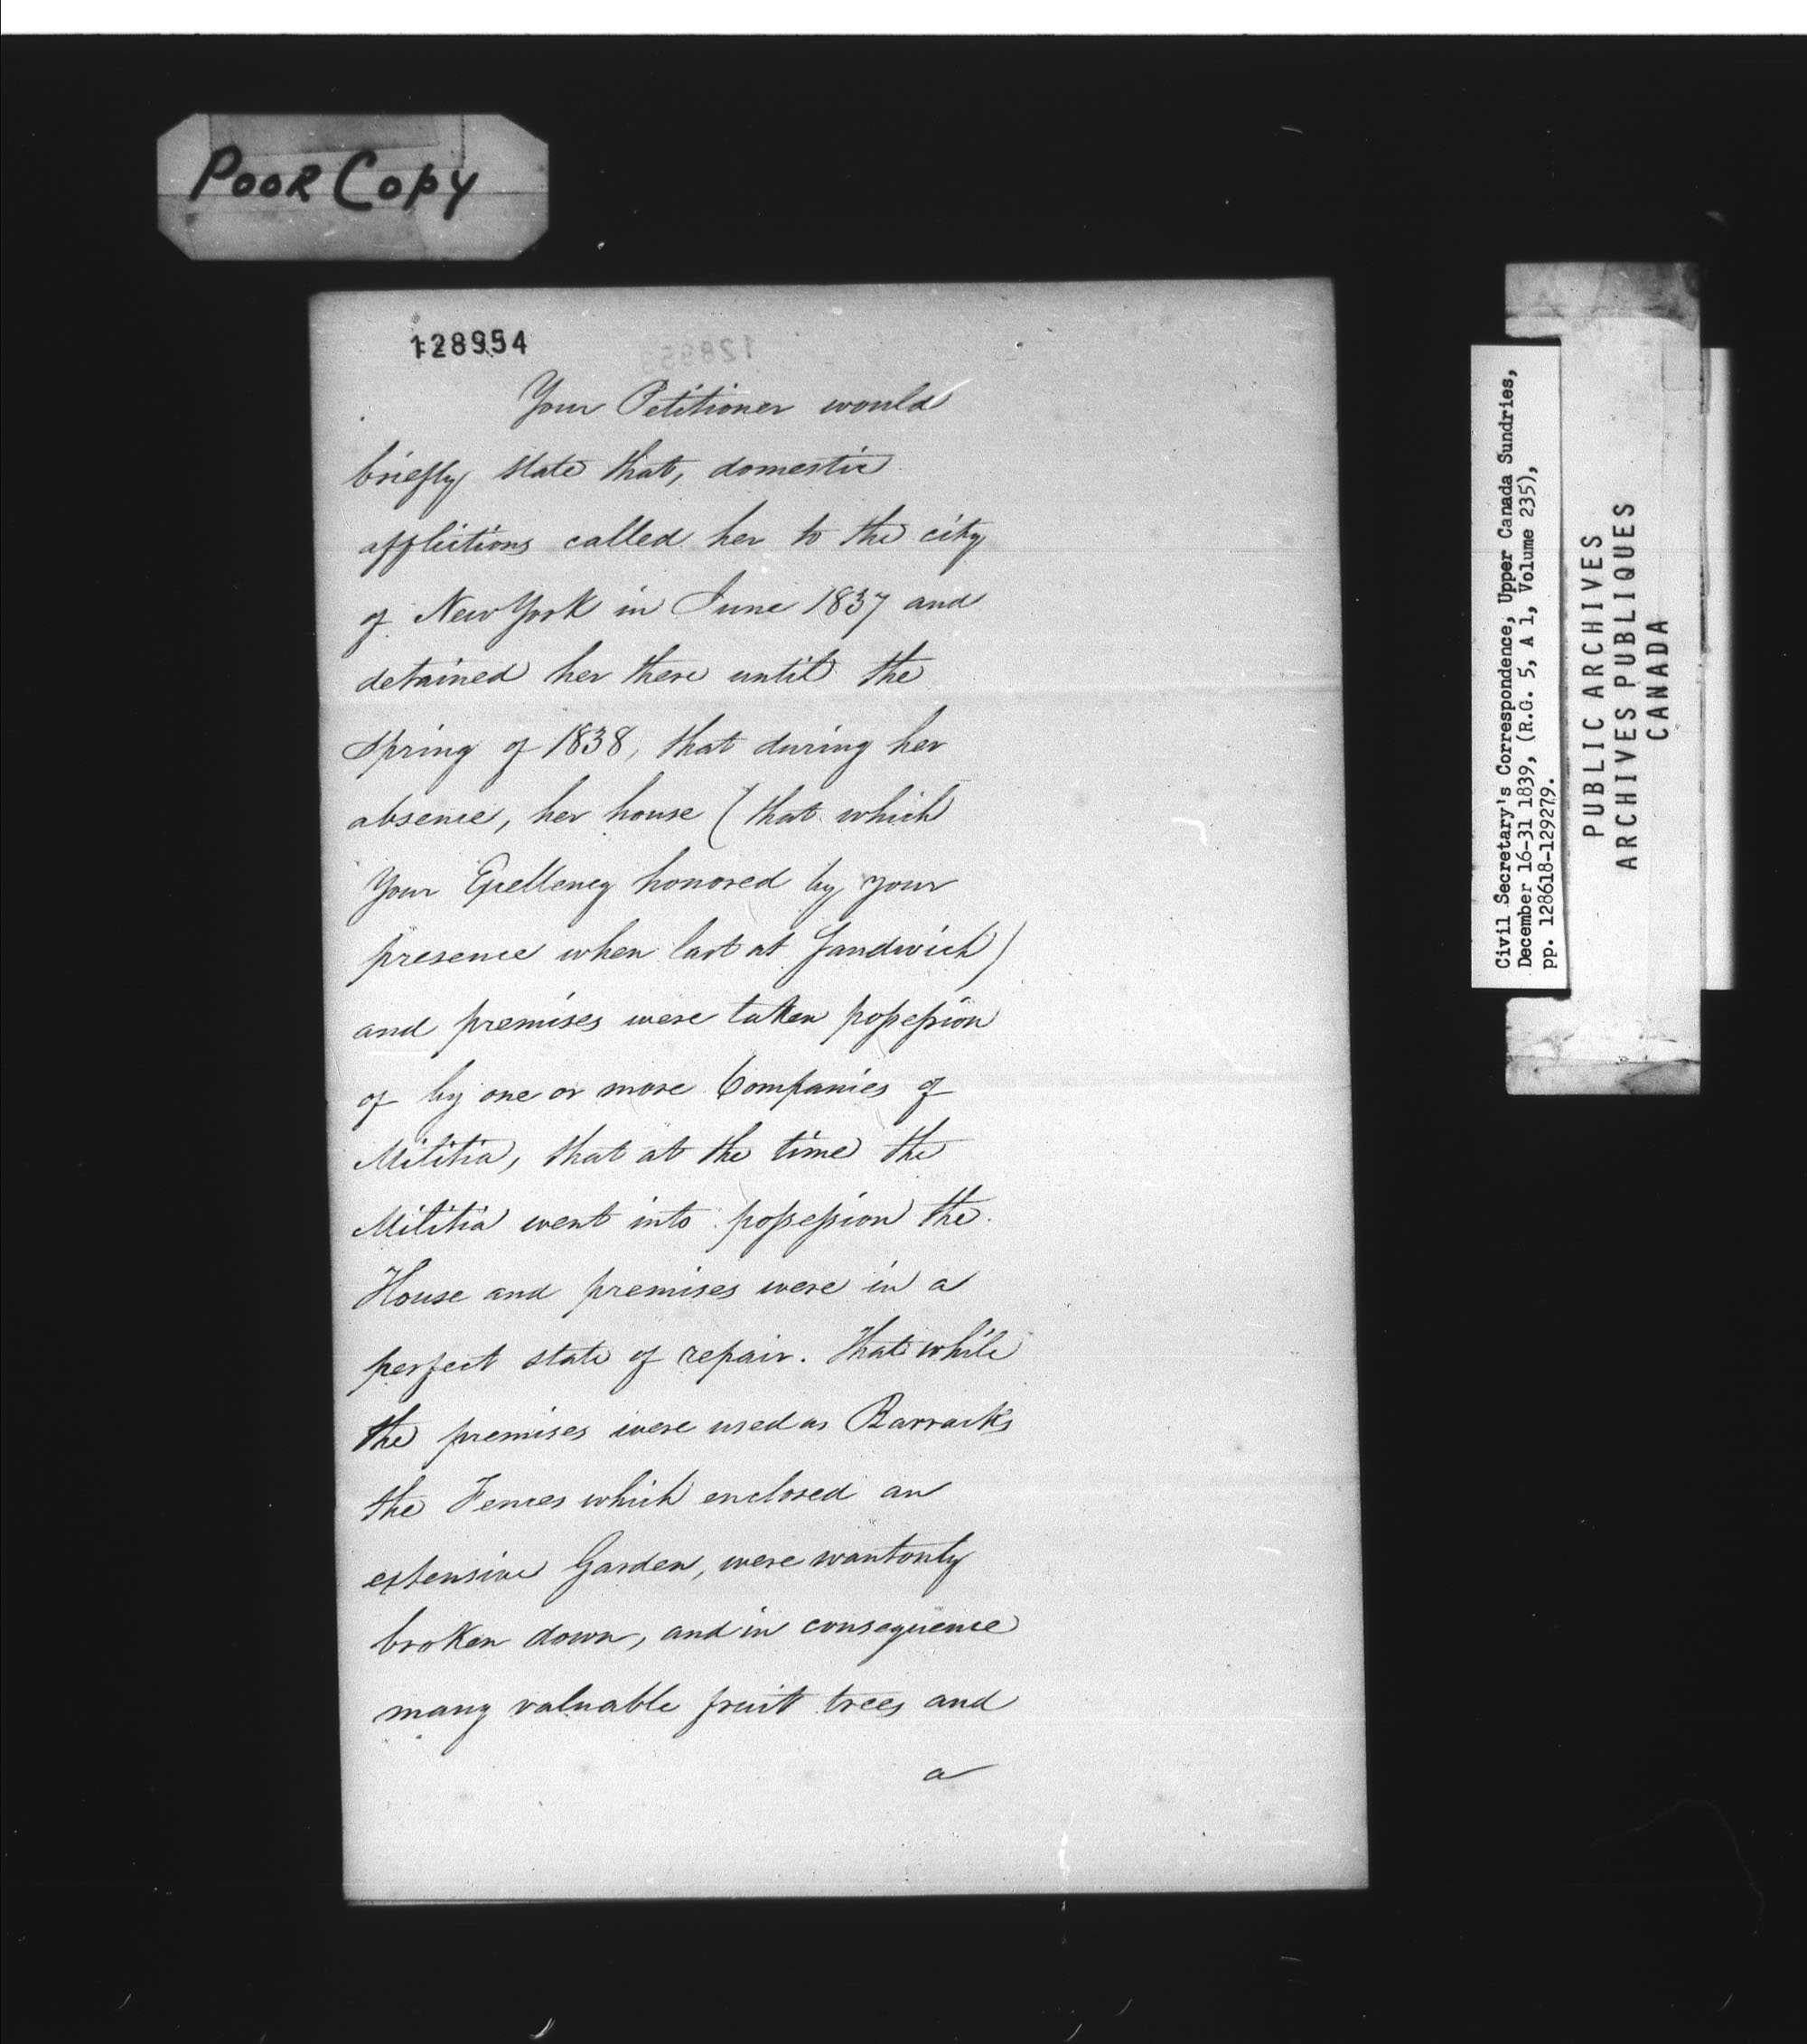 Poor Copy
128954
Your Petitioner would
briefly state that, domestic
afflictions called her to the city
of New York in June 1837 and
detained her there until the
Spring of 1838, that during her
absence, her house (that which
Your Excellency honored by your
presence when last at Sandwich)
and premises were taken possession
of by one or more Companies of
Militia, that at the time the
Militia went into possession the
House and premises were in a
perfect state of repair. That while
the premises were used as Barracks
the Fences which enclosed an
extensive Garden, were wantonly
broken down, and in consequence
many valuable fruit trees and
a
Civil Secretary's Correspondence, Upper Canada Sundries,
December 16-31 1839, (R.G. 5, A 1, Volume 235),
pp. 128618-129279.
PUBLIC ARCHIVES
ARCHIVES PUBLIQUES
CANADA